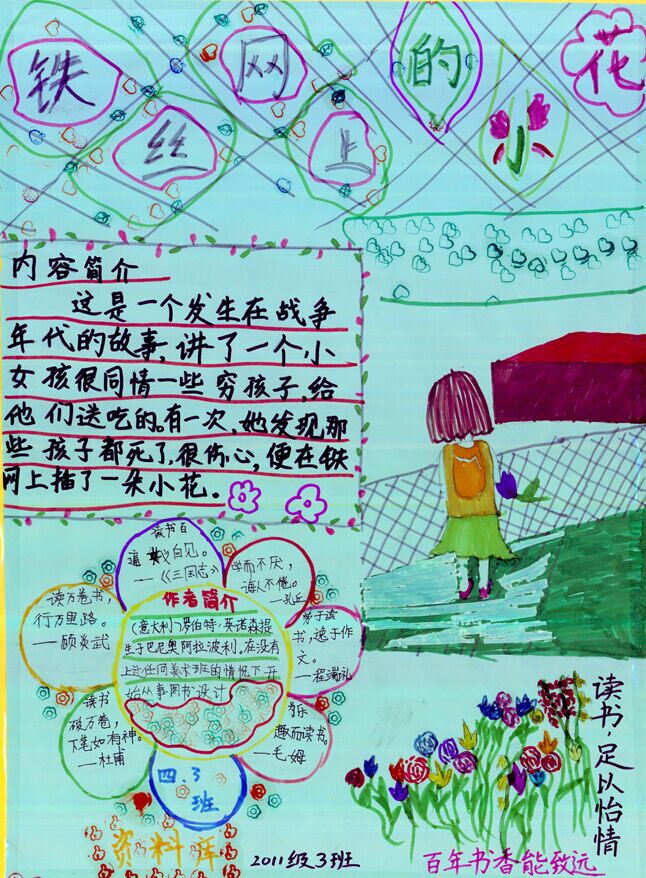 铁丝网上的小花
内容简介
这是一个发生在战争
年代的故事,讲了一个小
女孩很同情一些穷孩子,给
他们送吃的。有一次,她发现那
些孩子都死了,很伤心,便在铁
网上插了一朵小花。
读书百
遍 自见。
——《三国志》
学而不厌,
诲人不倦。
——孔丘
读万卷书,
行万里路。
——顾炎武
作者简介
(意大利)罗伯特·英诺森提
生于巴尼奥阿拉波利。在没有
上过任何美术班的情况下开
始从事图书设计
劳于读
书,逸于作
文。
——程端礼
读书
破万卷,
下笔如有神。
——杜甫
为乐
趣而读书。
——毛姆
四.3
班
资料库
2011级3班
读书,足以怡情
百年书香能致远